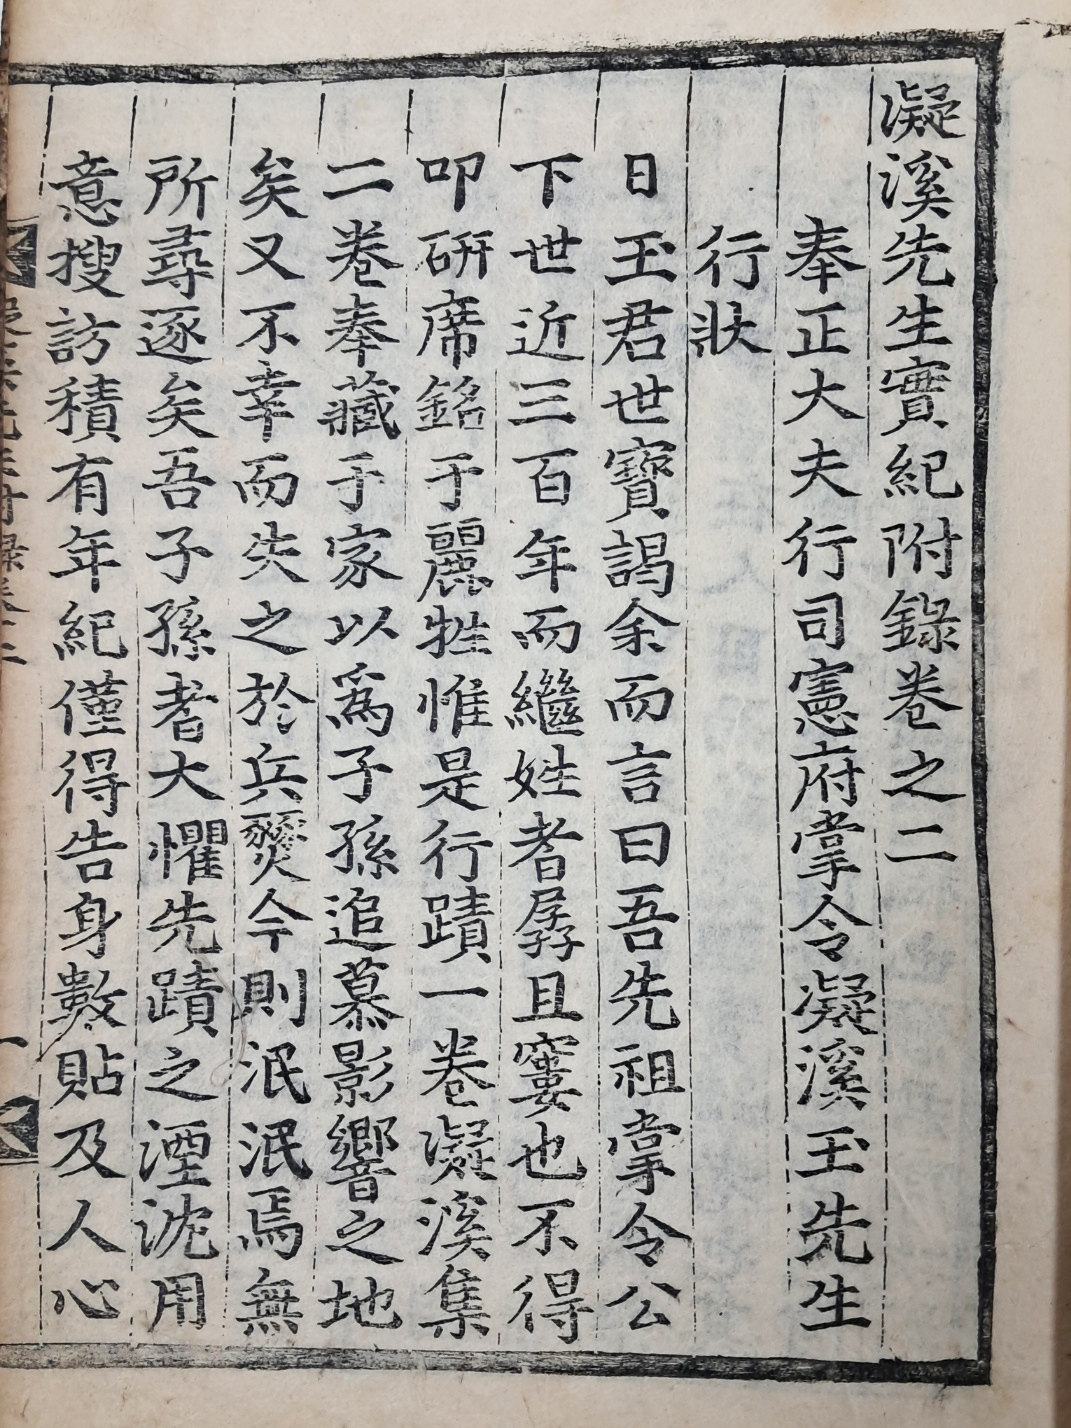 凝溪先生實紀附錄卷之二
奉正大夫行司憲府掌令凝溪玉先生
行狀
日玉君世寶謁余而言曰吾先祖掌令公
下世近三百年而繼姓者孱且窶也不得
叩硏席銘于麗牲惟是行蹟一卷凝溪集
二卷奉藏于家以爲子孫追慕影響之地
矣又不幸而失之於兵燹今則泯泯焉無
所尋逐矣吾子孫者大懼先蹟之湮沈用
意搜訪積有年紀僅得告身數貼及人心